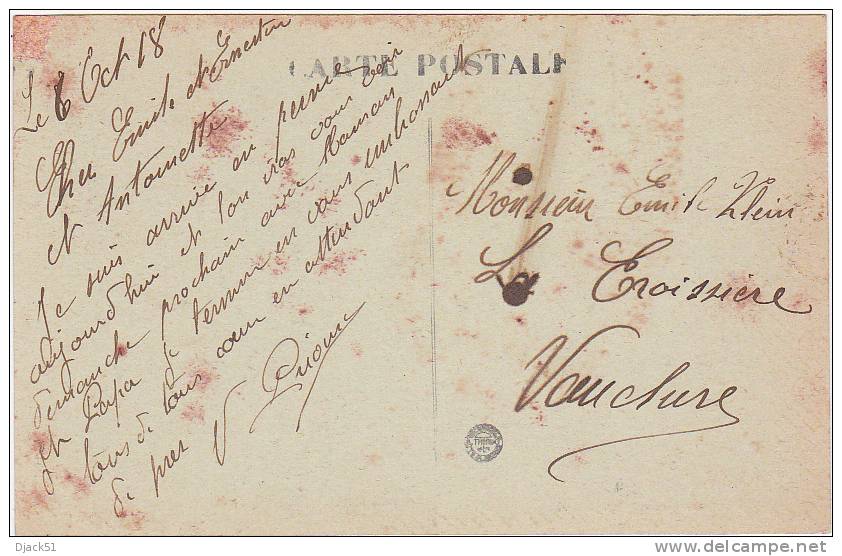 CARTE POSTALE
Le 6 Oct 18
Cher Emile et Ernestine
et Antoinette
Je suis arrivé en perme
aujourd'hui et l'on iras vous voir
dimanche prochain avec Maman
et Papa je termine en vous embrassant
tous de tous cœur en attendant
de pres V
Monsieur Emile Klein
La Croissière
Vaucluse
Djack51
delcampe.net